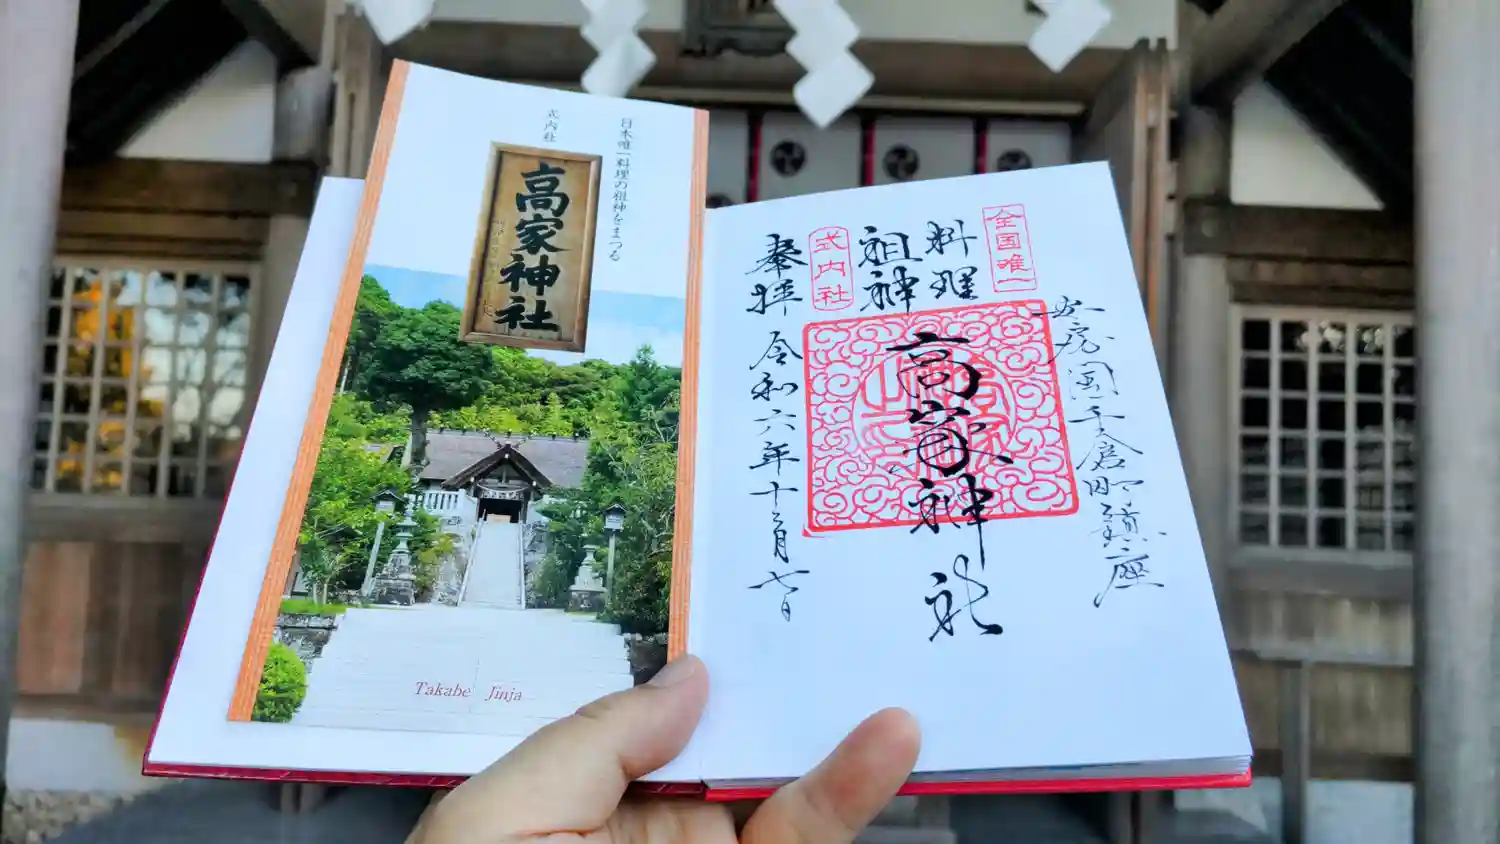 日本唯一料理の祖神をまつる
式内社
高家神社
Takabe Jinja
全国唯一
安房国千倉郷鎮座
料理
祖神
式内社
高家神社
奉拝
令和六年十二月七日